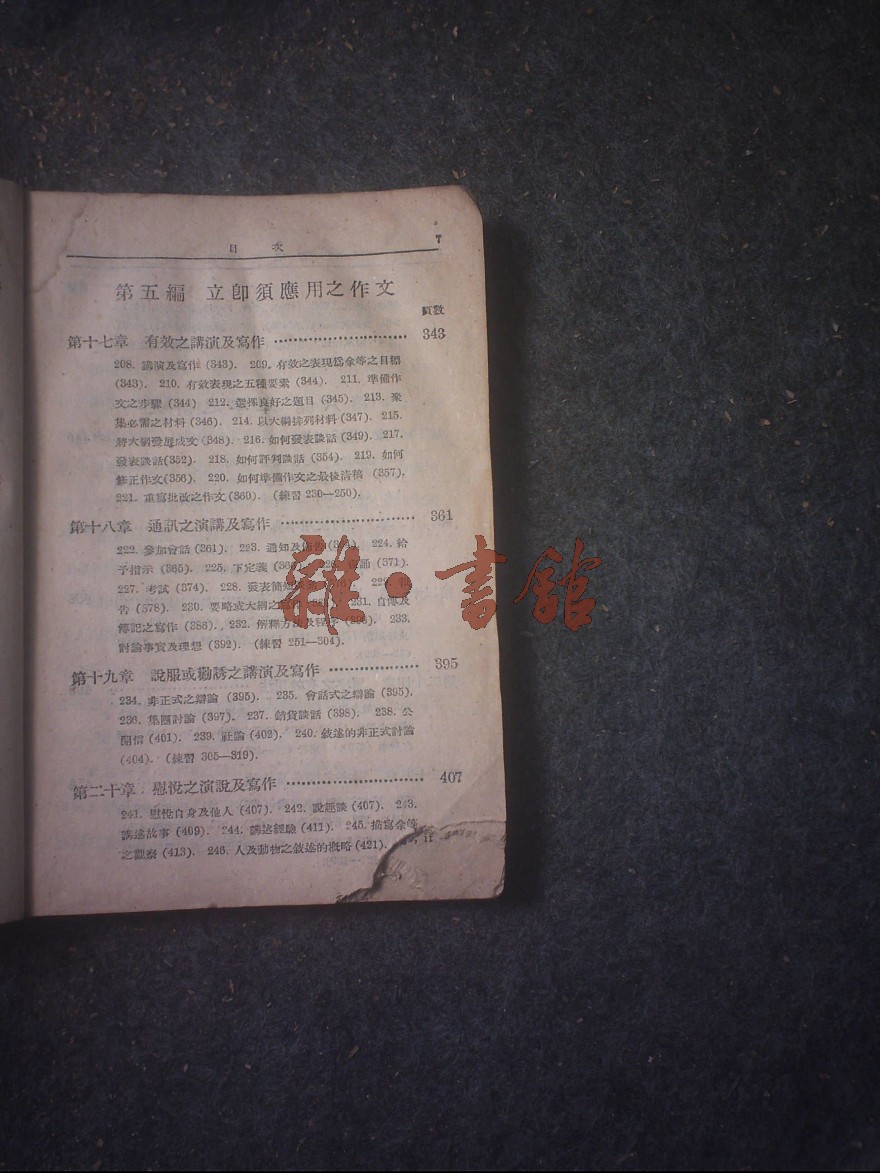 目 次 7
第五編 立卽須應用之作文
頁數
第十七章 有效之講演及寫作 ⋯⋯⋯⋯⋯⋯⋯⋯ 343
208. 講演及寫作 (343). 209. 有效之表現爲余等之目標
(343). 210. 有效表現之五種要素 (344). 211. 準備作
文之步驟 (344) 212. 選擇良好之題目 (345). 213. 聚
集必需之材料 (346). 214. 以大綱排列材料 (347). 215.
將大綱發展成文 (348). 216. 如何發表談話 (349). 217.
發表談話(352). 218. 如何評判談話 (354). 219. 如何
修正作文(356). 220. 如何準備作文之最後清稿 (357).
221. 重寫批改之作文 (360). (練習 230—250).
第十八章 通訊之演講及寫作 ⋯⋯⋯⋯⋯⋯⋯⋯ 361
222. 參加會話 (361). 223. 通知及 224. 給
予指示 (365). 225. 下定義 誦 (371).
227. 考試 (374). 228. 發表簡短
告 (378). 230. 要略或大綱之 231. 自傳及
傳記之寫作 (386). 232. 解釋方法及程序 233.
討論事實及理想 (392). (練習 251—304).
第十九章 說服或勸誘之講演及寫作 ⋯⋯⋯⋯⋯ 395
234. 非正式之辯論 (395). 235. 會話式之辯論 (395).
236. 集團討論 (397). 237. 銷貨談話 (398). 238. 公
開信 (401). 239. 社論 (402). 240. 敘述的非正式討論
(404). (練習 305—319).
第二十章 慰悅之演說及寫作 ⋯⋯⋯⋯⋯⋯⋯⋯ 407
241. 慰悅自身及他人 (407). 242. 說趣談 (407). 243.
講述故事 (409). 244. 講述經驗 (411). 245. 描寫余等
之觀察 (413). 246. 人及動物之敘述的概略 (421).
雜·書館